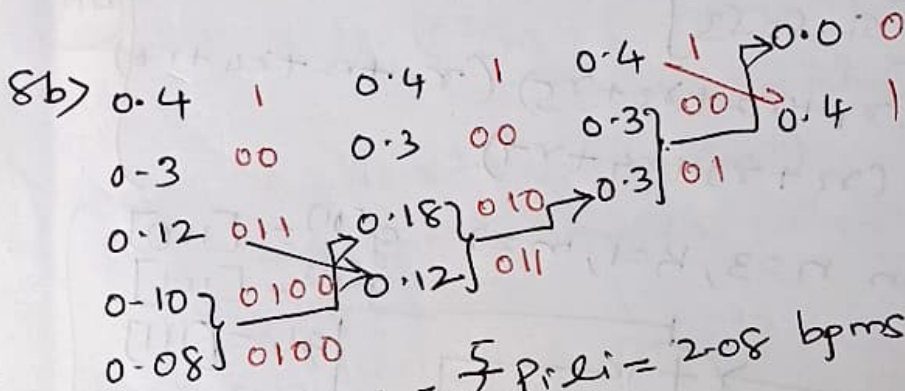 8b> 0.4 1 0.4 1 0.4 1 0.0 0
0-3 00 0.3 00 0.3 00 0.4 1
0.12 011 0.18 010 0.3 01
0-10 0100 0.12 011
0.08 0100
= Σ Pili = 2.08 bpms